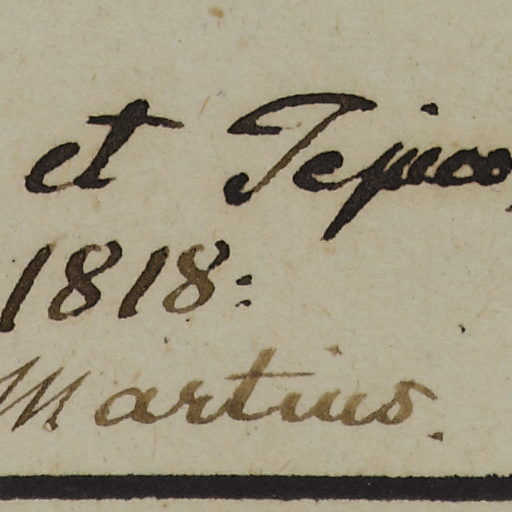 et Tejuco
1818:
Martius.